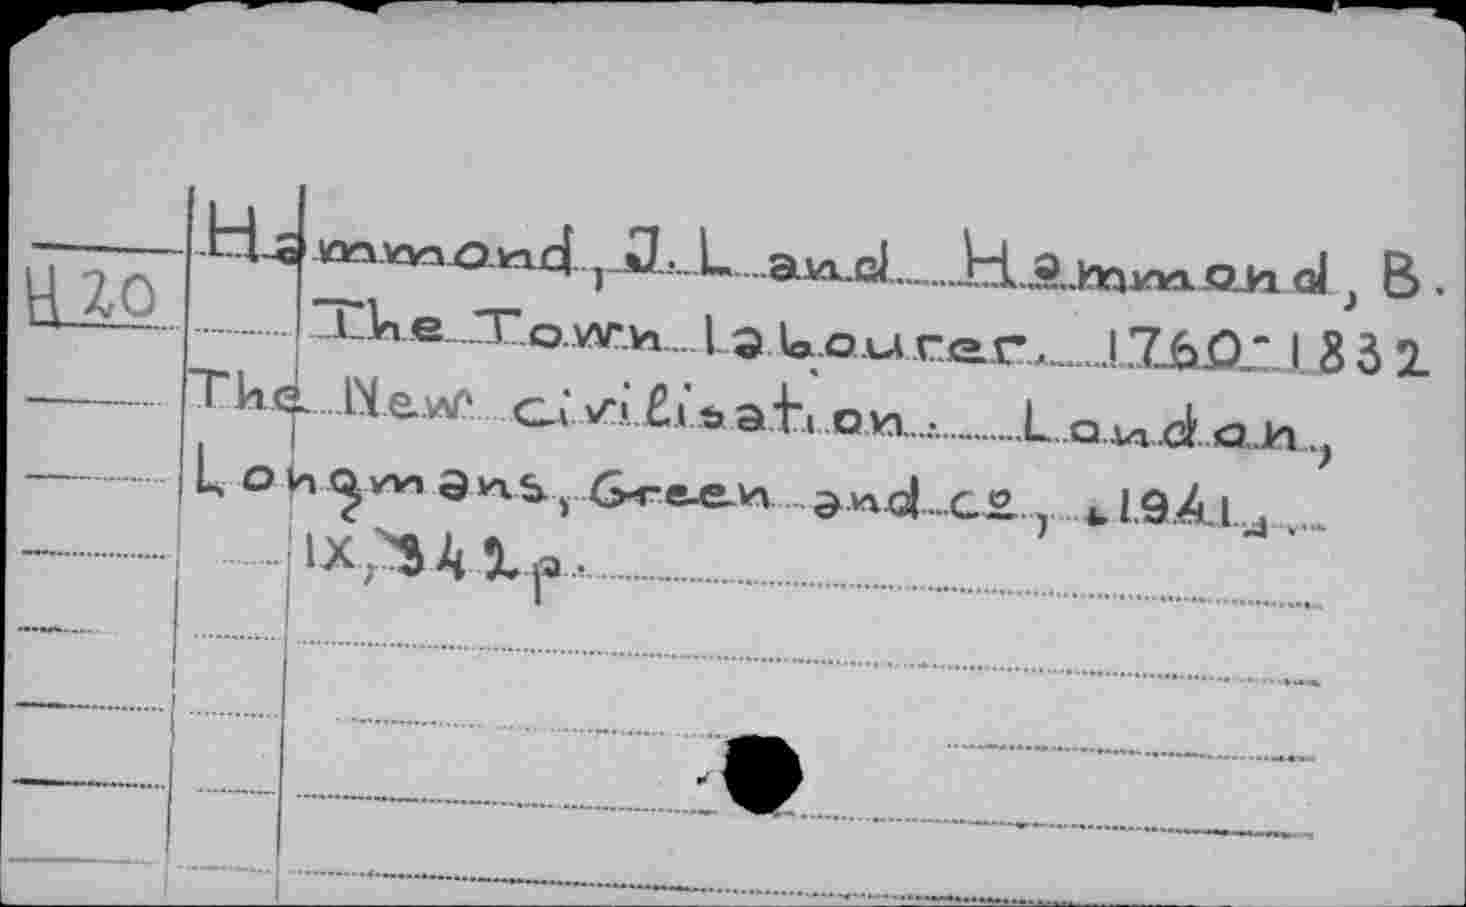 H20
Hammond, J. L. and Hammond, B.
The Town labourer. 1760-1832
The New civilisation. London,
Longmans, Green and co, 1941,
IX, 342 p.